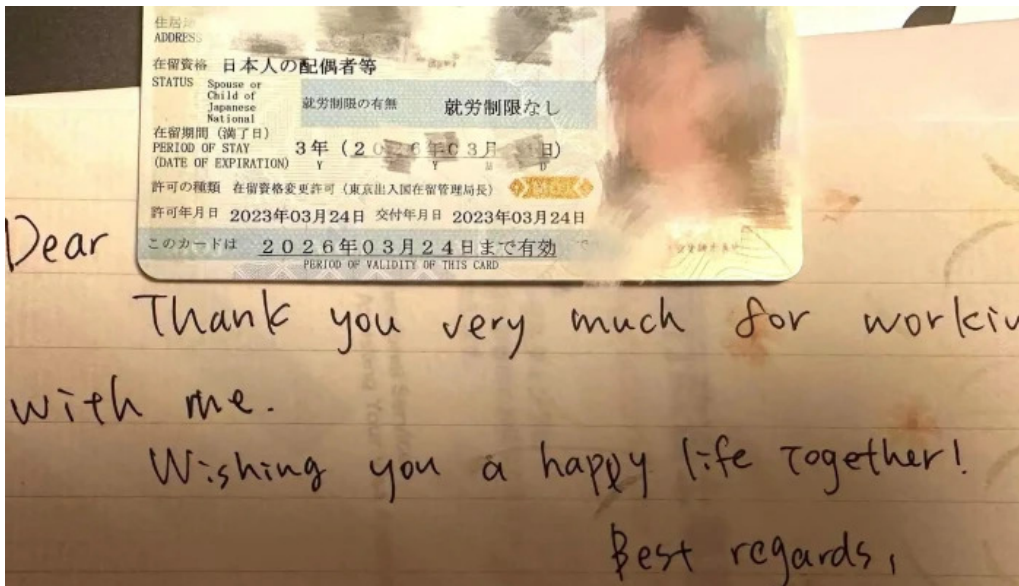 住居地
ADDRESS
在留資格 日本人の配偶者等
STATUS Spouse or
Child of
Japanese
National
就労制限の有無 就労制限なし
在留期間 (満了日)
PERIOD OF STAY
(DATE OF EXPIRATION)
3年 (2026年03月 日)
Y Y M D
許可の種類 在留資格変更許可 (東京出入国在留管理局長)
許可年月日 2023年03月24日 交付年月日 2023年03月24日
このカードは 2026年03月24日まで有効
PERIOD OF VALIDITY OF THIS CARD
Dear
Thank you very much for workin
with me.
Wishing you a happy life together!
Best regards,